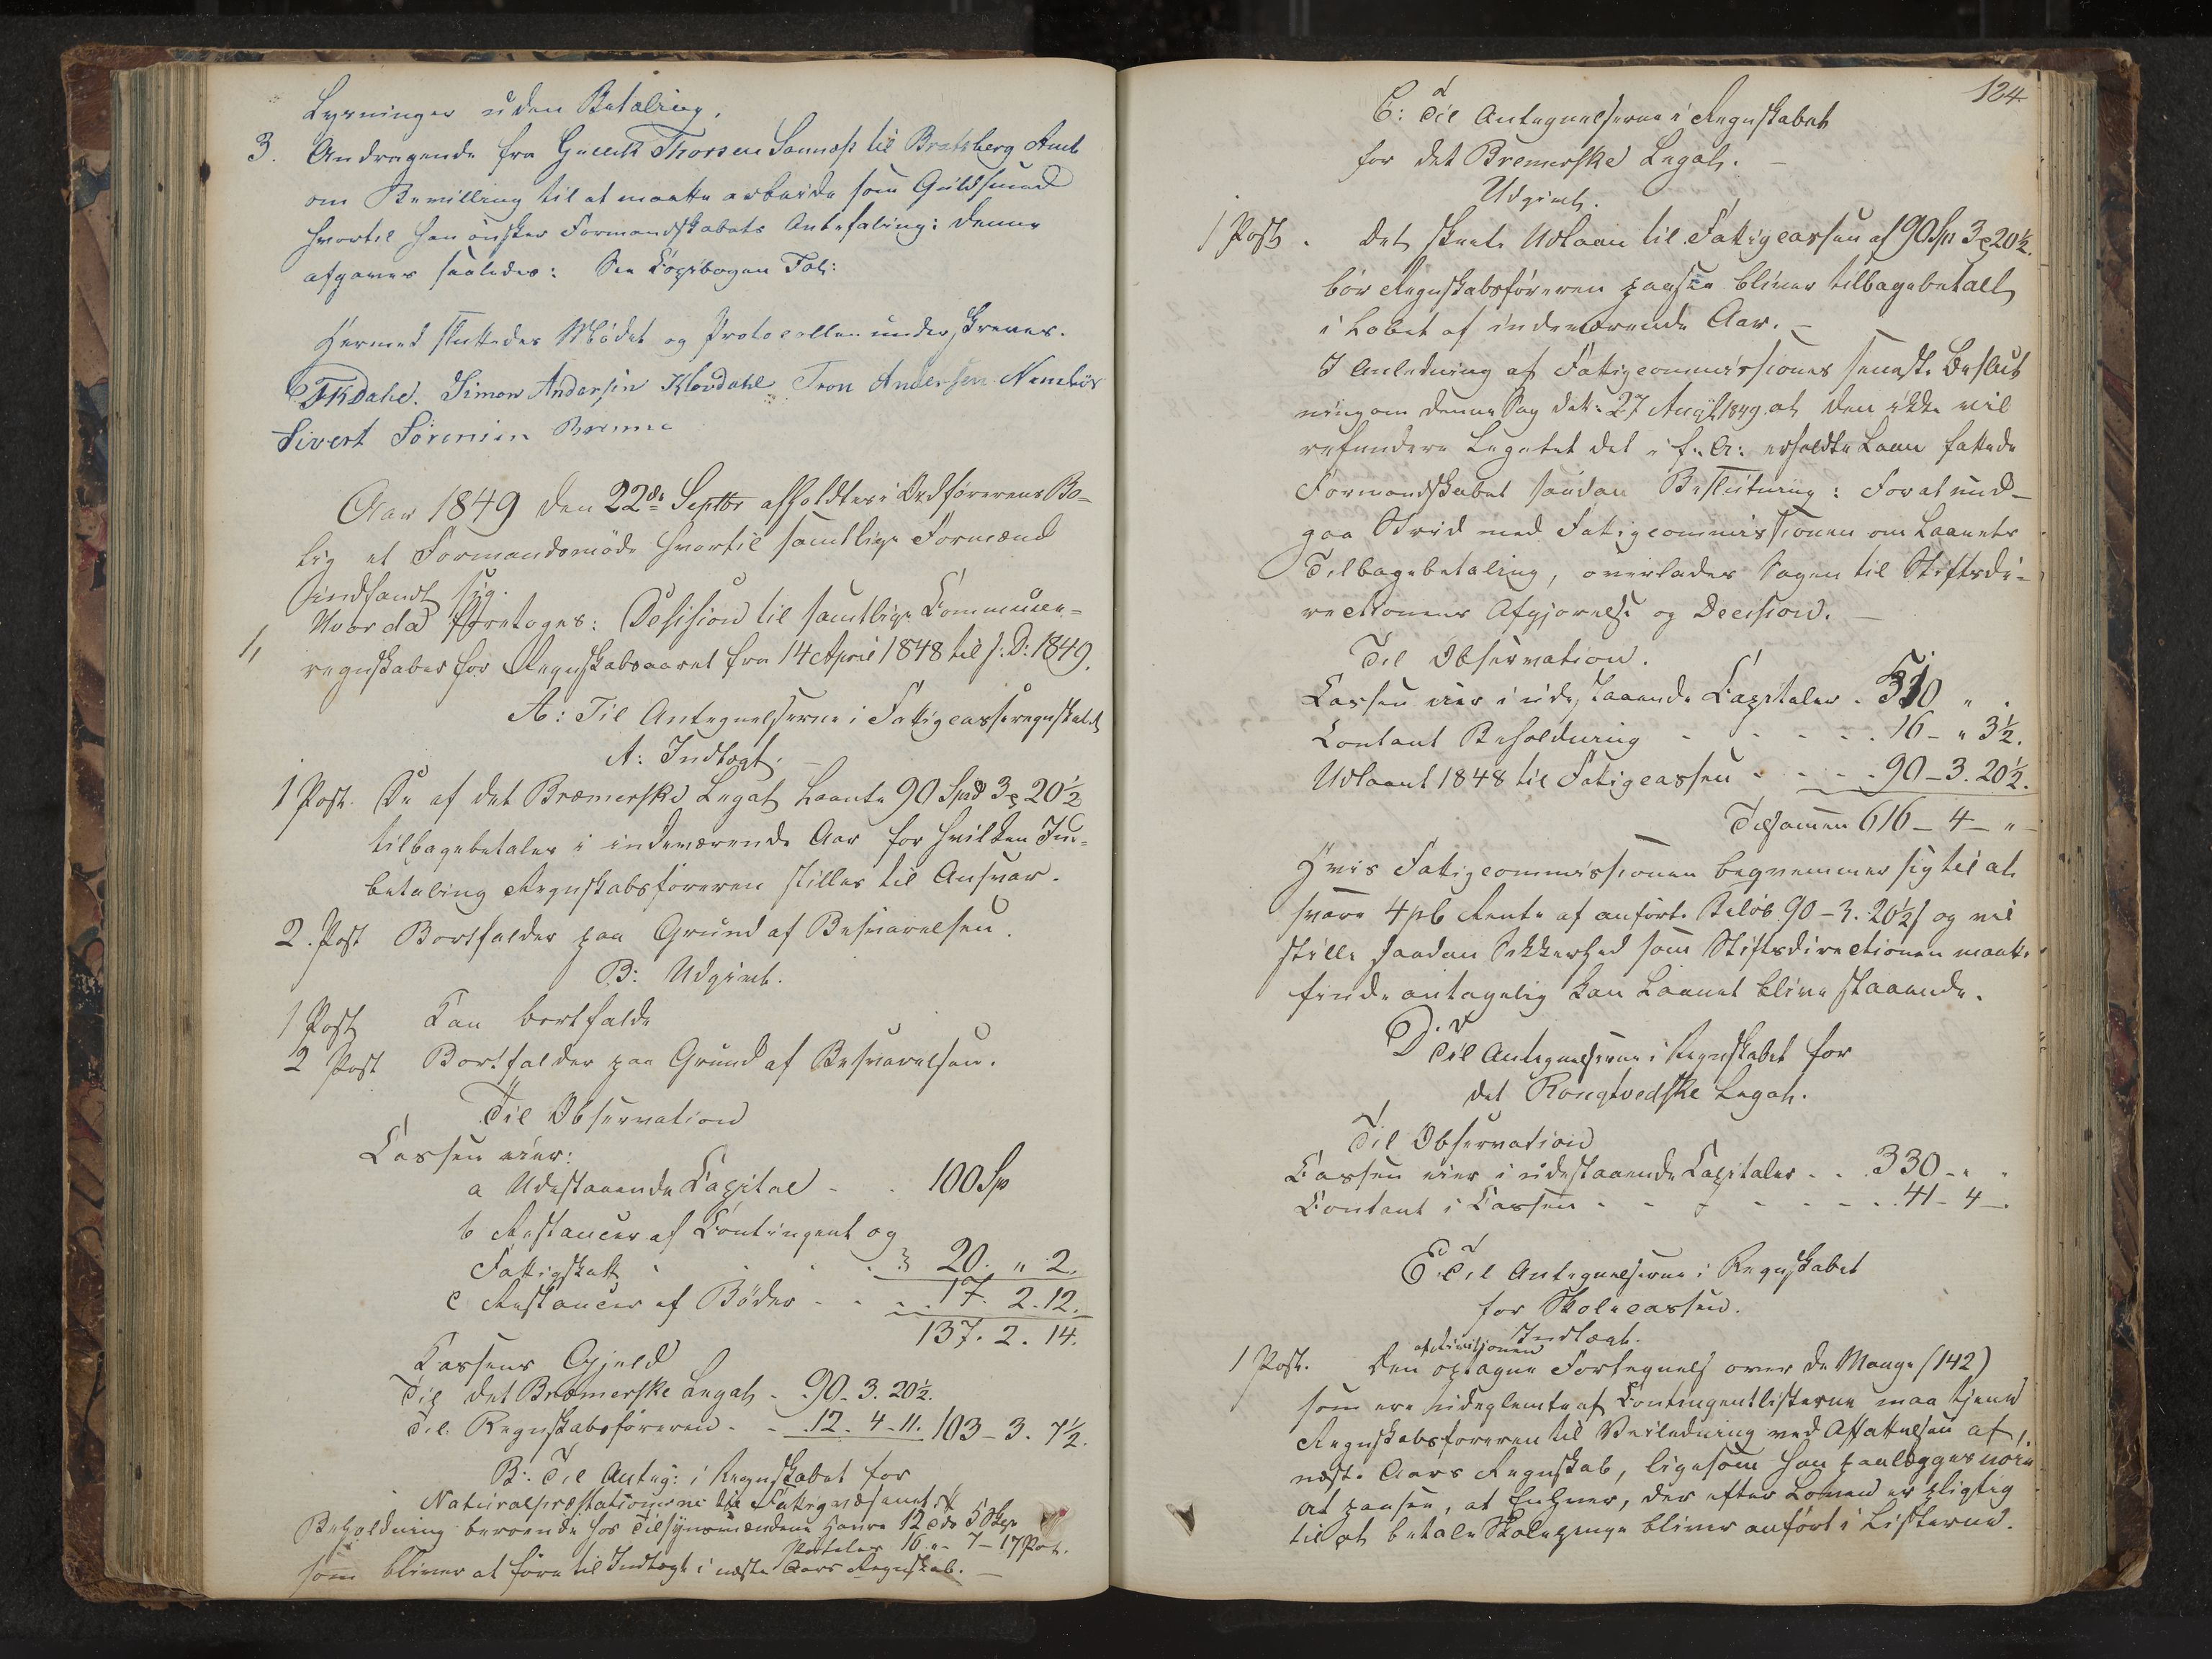 Lysninger uden Betaling.
3. Andragende fra Gullik Thorsen til Bratsberg Amt
om Bevilling til at maatte arbeide som Guldsmed
hvortil han ønsker Formandskabets Anbefaling: denne
afgaves saaledes: See Copibogen Fol:
Hermed sluttedes Mødet og Protocollen underskreves.
TKDahl. Simon Andersen Klovdahl Tron Andersen
Sivert Sörensen
Aar 1849 den 22de Septbr afholdtes i Ordførerens Bo-
lig et Formandsmøde hvortil samtlige Formænd
indfandt sig.
1, Hvorda foretoges: Desision til samtlige Commune-
regnskaber for Regnskabsaaret fra 14 April 1848 til s: D: 1849.
A: Til Antegnelserne i Fattigcasseregnskabet
A: Indtægt.
1 Post. De af det Bræmerske Legat laante 90 Spd 3 20½
tilbagebetales i indeværende Aar for hvilken Ind-
betaling Regnskabsføreren stilles til Ansvar.
2. Post Bortfalder paa Grund af Besvarelsen.
B: Udgivt.
1 Post Kan bortfalde
2 Post Bortfalder paa Grund af Besvarelsen.
Til Observation
Cassen eier:
a Udestaaende Capital - . 100 Sp
b Restancer af Contingent og
Fattigskatt 20. " 2.
c Restancer af Bøder - - 17. 2. 12.
137. 2. 14.
Cassens Gjeld
Til det Bræmerske Legat - 90. 3. 20½.
Til Regnskabsføreren - - 12. 4. 11. 103 - 3. 7½.
B: Til Anteg: i Regnskabet for
Naturalpræstationerne til Fattigvæsenet
Beholdning beroende hos Tilsynsmændene Havre 12 Tdr 5 Skp
Poteter 16 " - 7 - 17 Pot.
som bliver at føre til Indtægt i næste Aars Regnskab.
124
C: Til Antegnelserne i Regnskabet
for det Bremerske Legat.
Udgivt.
1 Post. Det skeete Udlaan til Fattigcassen af 90 Sp 3 20½.
bør Regnskabsføreren paasee bliver tilbagebetalt
i Løbet af indeværende Aar.
I Anledning af Fatigcommissionens seneste Beslut
ning om denne Sag dat: 27 August 1849 at den ikke vil
refundere Legatet det i f: A: erholdte Laan fattede
Formandskabet saadan Beslutning: For at und-
gaa Strid med Fatigcommissionen om Laanets
Tilbagebetaling, overlades Sagen til Stiftsdi-
rectionens Afgjørelse og Decision.
Til Observation.
Cassen eier i udestaaende Capitaler . 510 " .
Contant Beholdning - - - - 16 - " 3½.
Udlaant 1848 til Fatigcassen - - - 90 - 3. 20½.
Tilsamen 616 - 4 - "
Hvis Fatigcommissionen beqvemmer sig til at
svare 4 pC Rente af anførte Beløb 90 - 3. 20½ og vil
stille saadan Sikkerhed som Stiftsdirectionen maatte
finde antagelig kan Laanet blive staaende.
D. Til Antegnelserne i Regnskabet for
det Rongtvedske Legat.
Til Observation
Cassen eier i udestaaende Capitaler . . 330 - " .
Contant i Cassen - - - - - - 41 - 4 -
E Til Antegnelserne i Regnskabet
for Skolecassen.
Indtægt.
af Revisjonen
1 Post. Den optagne Fortegnelse over de Mange (142)
som ere udeglemte af Contingentlisterne maa tjene
Regnskabsføreren til Veiledning ved Affattelsen af
næste Aars Regnskab, ligesom han paalægges nøie
at paasee, at Enhver, der efter Loven er pligtig
til at betale Skolepenge bliver anført i Listerne.